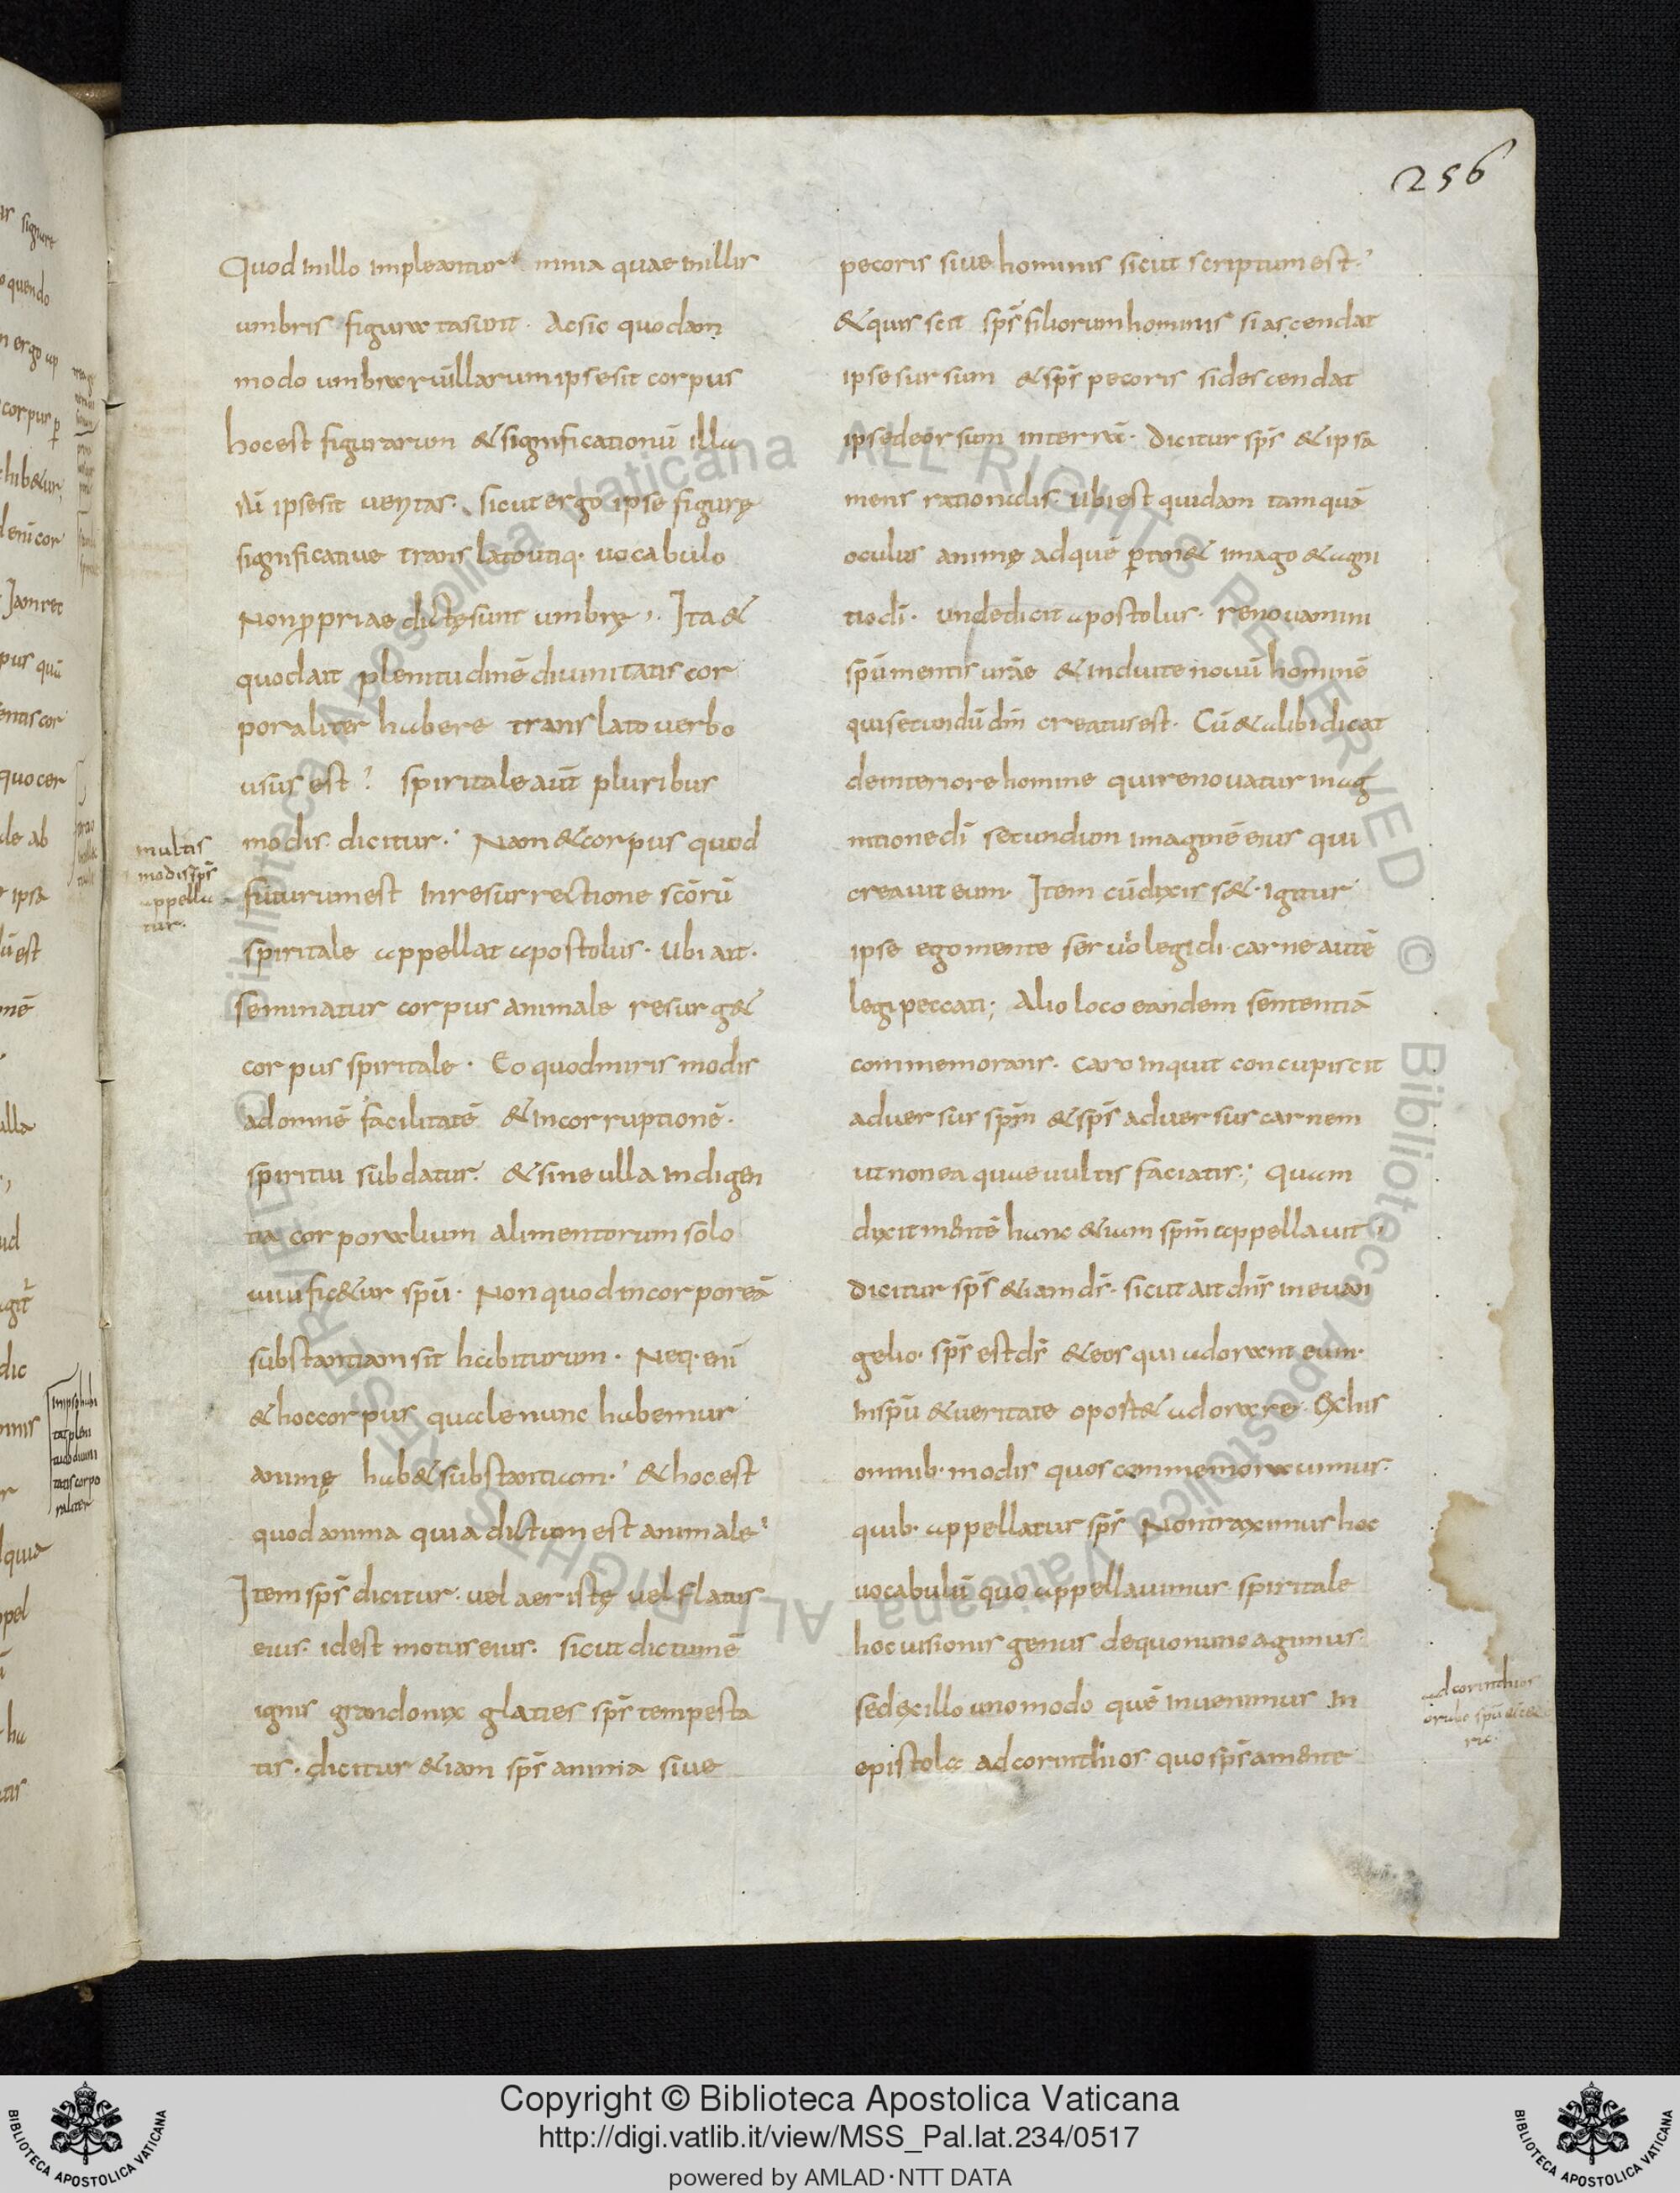 256
Quod in illo impleantur omnia quae in illis
umbris figurata sunt. Ac sic quodam
modo umbrarũ illarum ipse sit corpus
hoc est figurarum & significationũ illa
rũ ipse sit ueritas. sicut ergo ipse figurę
significatiue translato utiq. uocabulo
Non ꝓpriae dictę sunt umbrę; Ita &
quod ait plenitudinẽ diuinitatis cor
poraliter habere translato uerbo
usus est? spiritale aut̃ pluribus
modis dicitur. Nam & corpus quod
futurum est In resurrectione scõrũ
spiritale appellat apostolus. Ubi ait.
seminatur corpus animale resurg&
corpus spiritale. Eo quod miris modis
ad omnẽ facilitatẽ & incorruptionẽ.
spiritui subdatur. & sine ulla indigen
tia corporalium alimentorum solo
uiuific&ur spũ. Non quod incorporeã
substantiam sit habiturum. Neq. eni
& hoc corpus quale nunc habemus
animę hab& substantiam. & hoc est
quod anima quia dictum est animale.
Item sps̃ dicitur. uel aer istę uel flatus
eius. idest motus eius. sicut dictum ẽ
ignis grando nix glaties sps̃ tempesta
tis. dicitur &iam sps̃ anima siue
multis
modis sps̃
appella
tur.
pecoris siue hominis sicut scriptum est.
& quis scit sps̃ filiorum hominis si ascendat
ipse sursum & sps̃ pecoris si descendat
ipse deorsum in terrã. Dicitur sps̃ & ipsa
mens rationalis Ubi est quidam tamquã
oculus animę ad quẽ ꝑtin& imago & agni
tio di. unde dicit apostolus. renouamini
spũ mentis urãe & induite nouũ hominẽ
qui secundũ dm̃ creatus est. Cũ & alibi dicat
de interiore homine qui renouatur in ag
nitione di secundum imaginẽ eius qui
creauit eum. Item cũ dixiss&. Igitur
ipse ego mente seruio legi di. carne autẽ
legi peccati; Alio loco eandem sententiã
commemorans. caro inquit concupiscit
aduersus spm̃ & sps̃ aduersus carnem
ut non ea quae uultis faciatis; Quam
dixit mentẽ hanc &iam spm̃ appellauit
Dicitur sps̃ &iam ds̃. sicut ait dns̃ in euan
gelio. sps̃ est ds̃ & eos qui adorant eum.
In spũ & ueritate oport& adorare. Ex his
omnib. modis quos commemorauimus.
quib. appellatur sps̃ Non traximus hoc
uocabulũ quo appellauimus spiritale
hoc uisionis genus de quo nunc agimus.
sed ex illo uno modo quẽ inuenimus In
epistola ad corinthios quo sps̃ a mente
ad corinthios
Copyright © Biblioteca Apostolica Vaticana
http://digi.vatlib.it/view/MSS_Pal.lat.234/0517
powered by AMLAD·NTT DATA
BIBLIOTECA APOSTOLICA VATICANA
BIBLIOTECA APOSTOLICA VATICANA